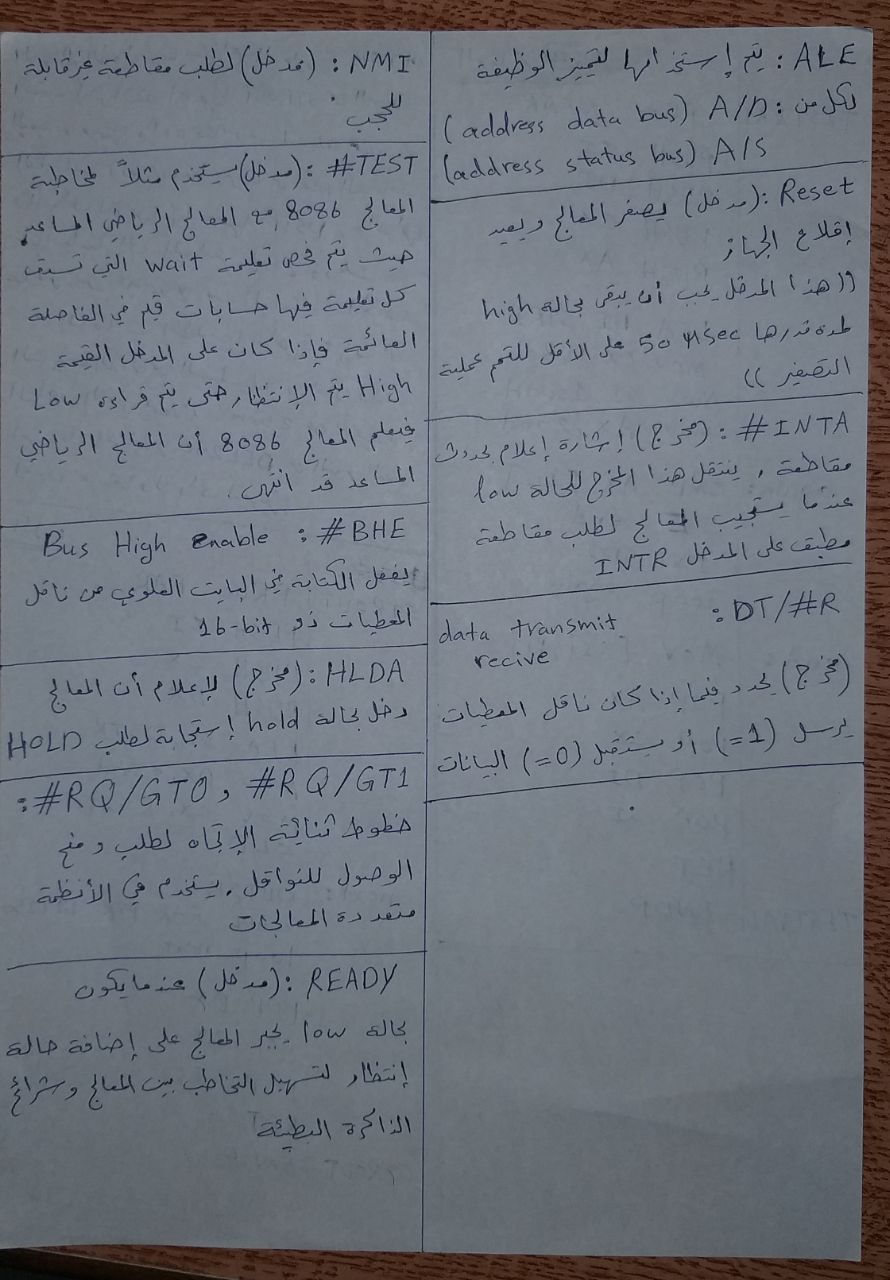 ALE : يتم إستخدامها لتمييز الوظيفة
لكل من : A/D (address data bus)
A/S (address status bus)
Reset : (مدخل) يصفر المعالج ويعيد
إقلاع الجهاز
(( هذا المدخل يجب أن يبقى بحالة high
لمدة قدرها 50 μsec على الأقل لتتم عملية
التصفير ))
#INTA : (مخرج) إشارة إعلام بحدوث
مقاطعة , ينتقل هذا المخرج للحالة low
عندما يستجيب المعالج لطلب مقاطعة
مطبق على المدخل INTR
DT/#R : data transmit
recive
(مخرج) يحدد فيما إذا كان ناقل المعطيات
يرسل (1=) أو يستقبل (0=) البيانات
NMI : (مدخل) لطلب مقاطعة غير قابلة
للحجب
#TEST : (مدخل) يستخدم مثلاً لمخاطبة
المعالج 8086 مع المعالج الرياضي المساعد
حيث يتم فحص تعليمة wait التي تسبق
كل تعليمة فيها حسابات قيم في الفاصلة
العائمة فإذا كان على المدخل القيمة
High يتم الإنتظار حتى يتم قراءة Low
فيعلم المعالج 8086 أن المعالج الرياضي
المساعد قد انتهى .
#BHE : Bus High enable
يفعل الكتابة في البايت العلوي من ناقل
المعطيات ذو 16-bit
HLDA : (مخرج) لإعلام أن المعالج
دخل بحالة hold إستجابة لطلب HOLD
#RQ/GT1 و #RQ/GT0 :
خطوط ثنائية الإتجاه لطلب و منح
الوصول للنواقل . يستخدم في الأنظمة
متعددة المعالجات
READY : (مدخل) عندما يكون
بحالة low يجبر المعالج على إضافة حالة
إنتظار لتسهيل التخاطب بين المعالج وشرائح
الذاكرة البطيئة